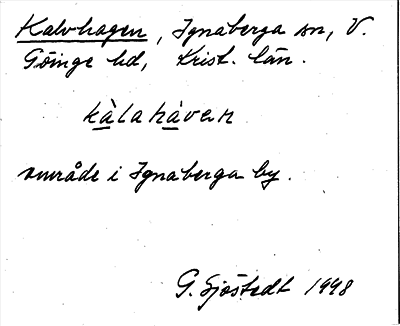 Kalvhagen, Ignaberga sn, V.
Göinge hd, Krist. län.
kàlahàvan
område i Ignaberga by.
G. Sjöstedt 1948